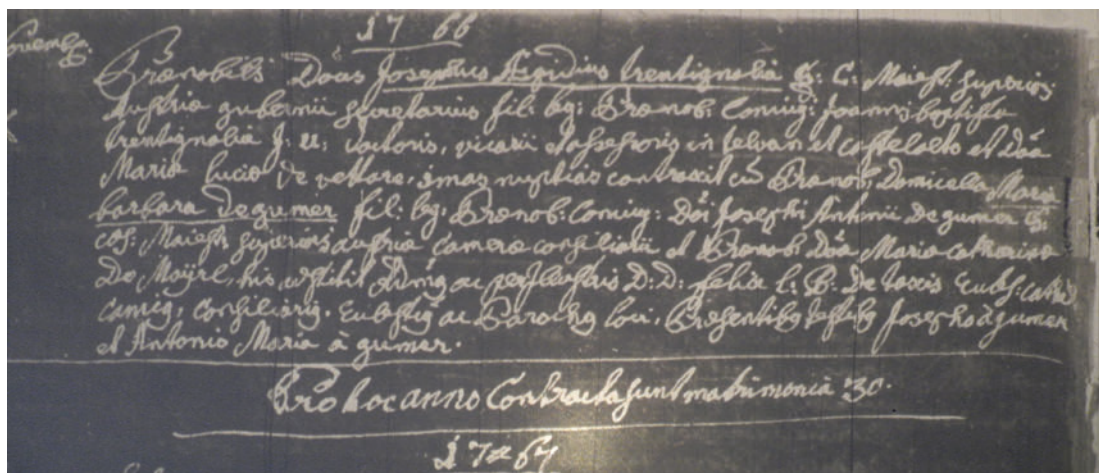 1766
Praenobilis Dõus Josephus Aegidius trentignalia S: C: Maiest: superioris
Austriae gubernii secretarius fil: lg: Praenob: Coniug: Joannis baptistae
trentignalia J: U: doctoris, vicarii et assessoris in telvan et castelalto et Dõa
Maria Lucia De vettare, 1mas nuptias contraxit cũ Praenob. Domicella Maria
barbara De gumer fil: lg: Praenob: Coniug: Dõi Josephi Antonii De gumer S:
Maiest: superioris austriae camerae consiliarii et Praenob. Dõa Maria Catharina
De Maÿrl, his astitit ac D: D: felix L: B: De taxis
consiliarig, ac Parochg loci, Presentibg testibg Josepho à gumer
et Antonio Maria à gumer.
Pro hoc anno Contracta sunt matrimonia 30.
1767